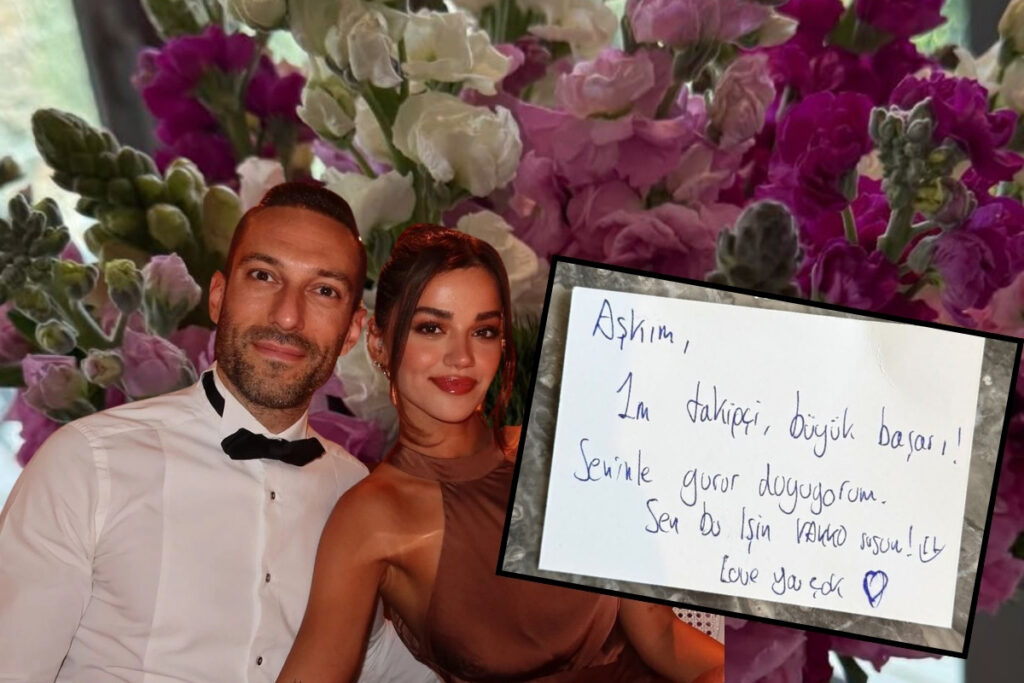 Aşkım,
1m takipçi, büyük başarı!
Seninle gurur duyuyorum.
Sen bu işin VAKKO susun!
Love you çok